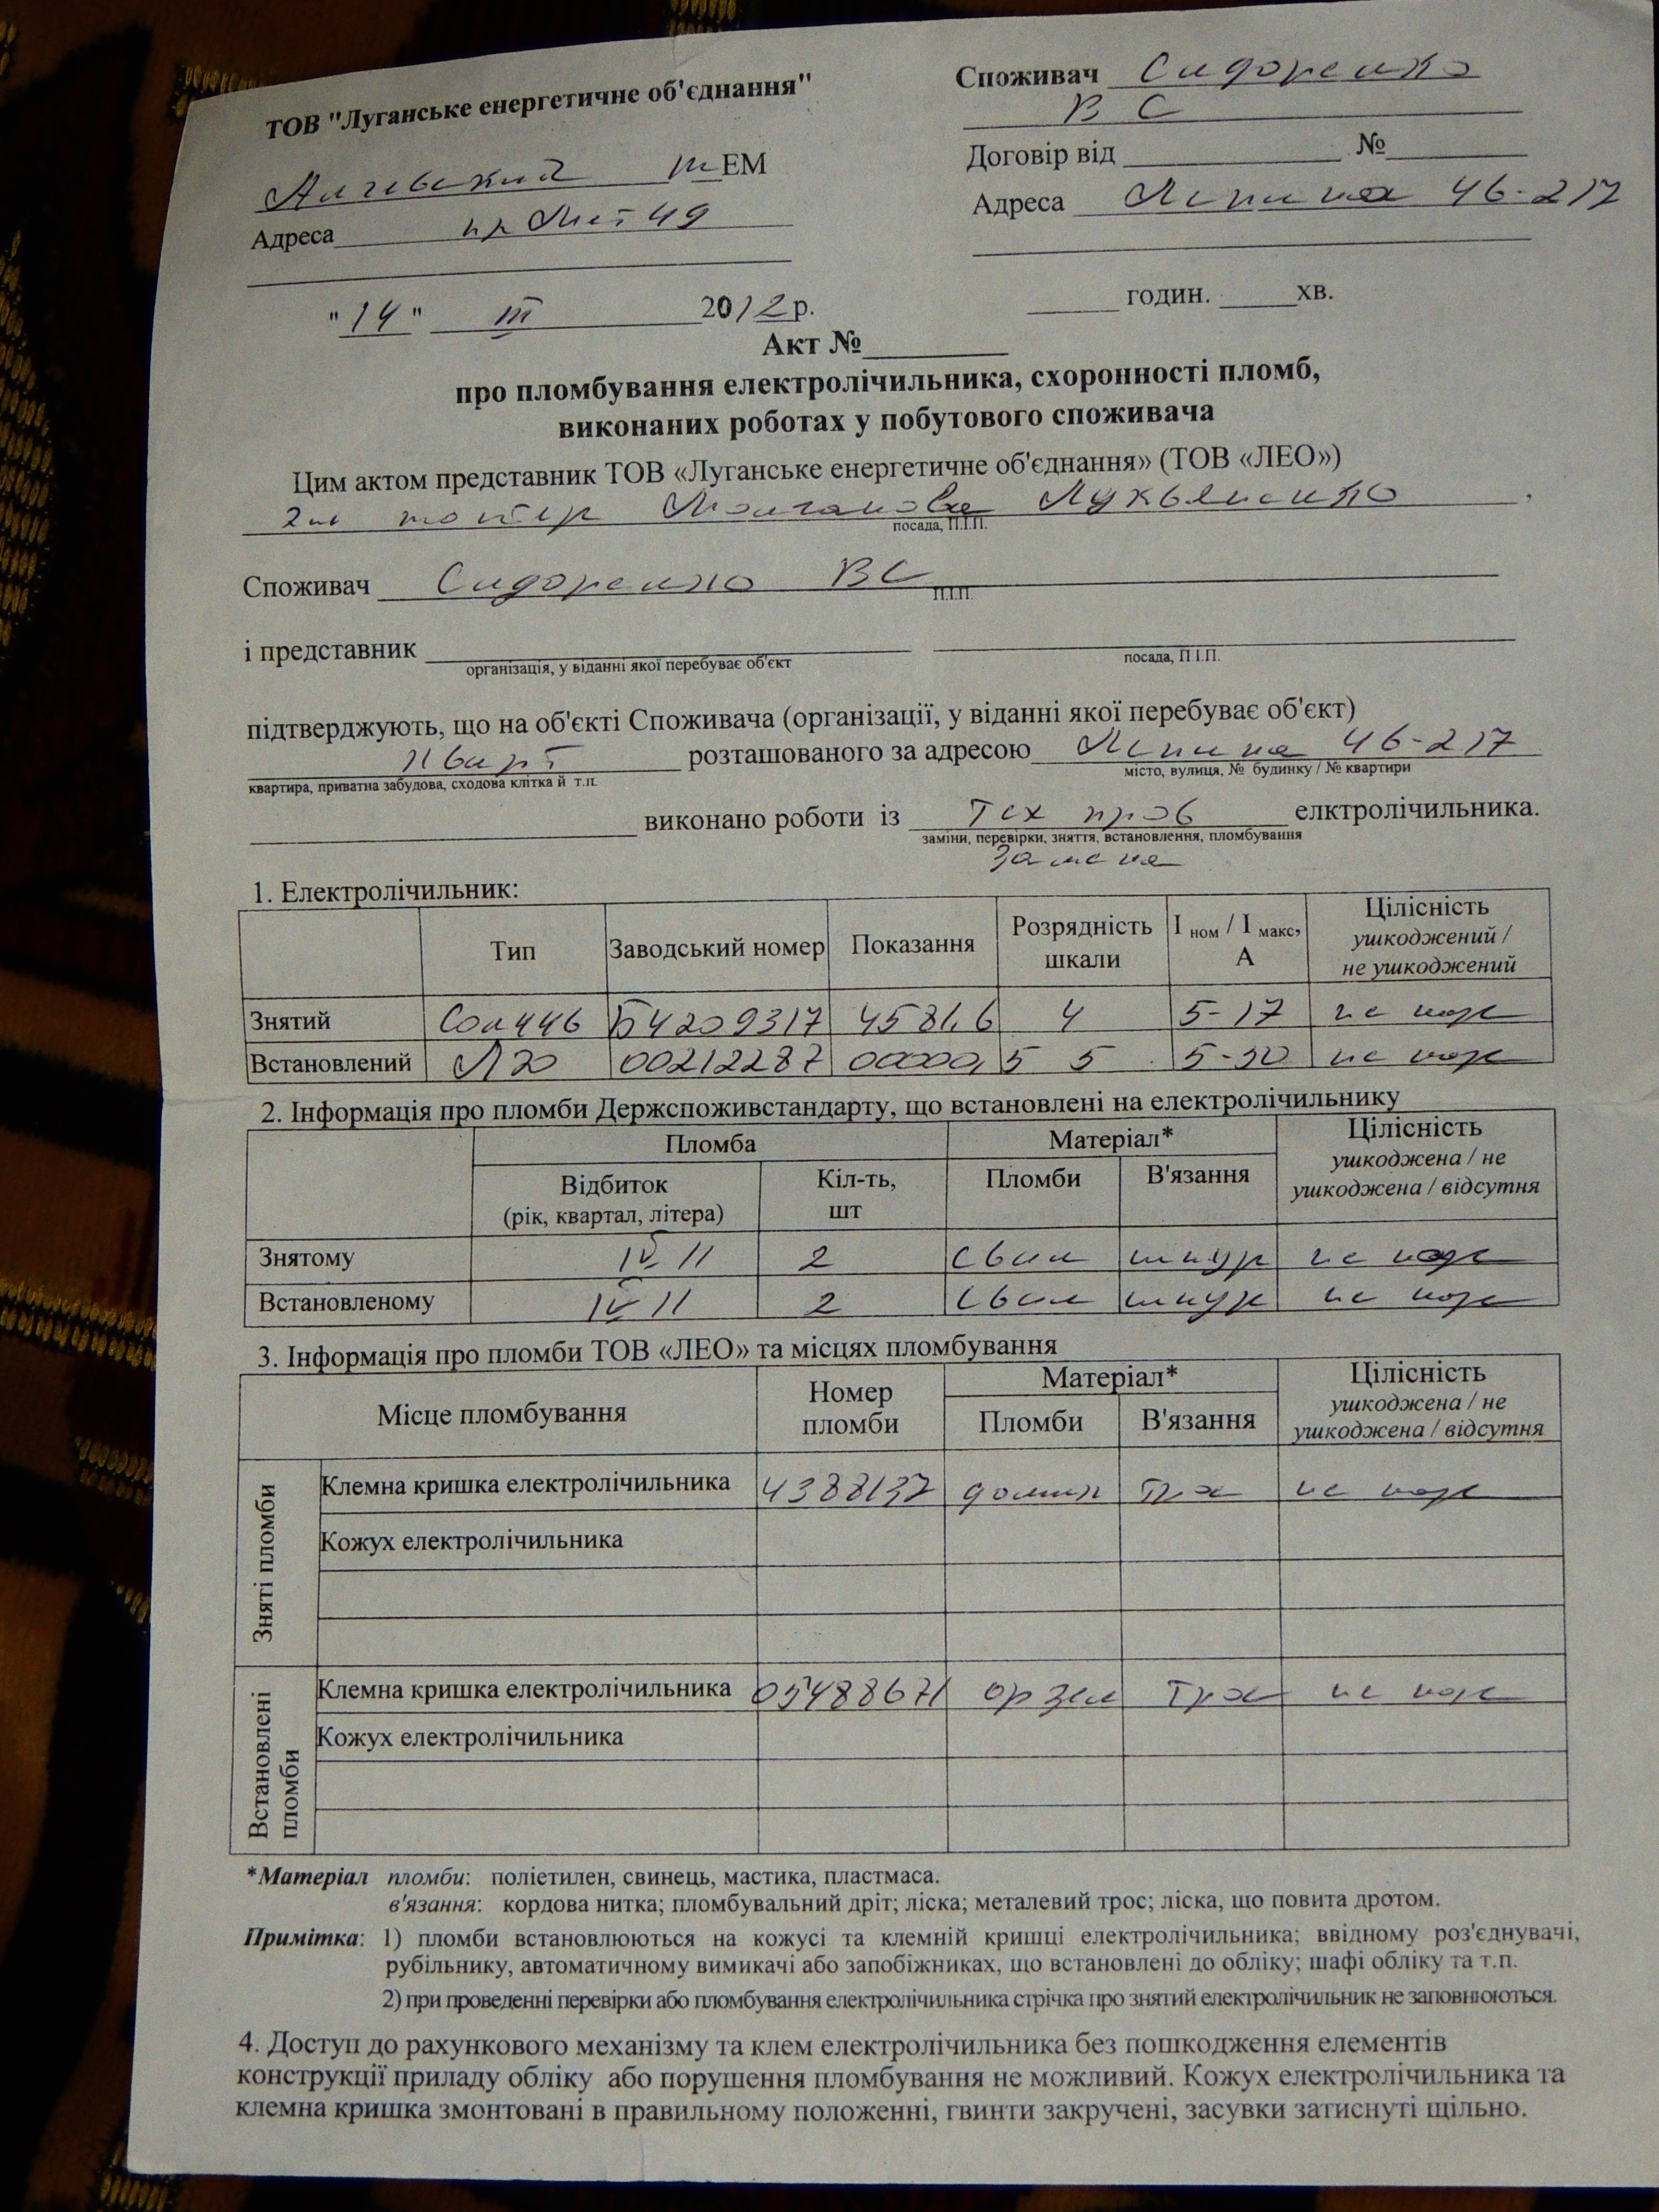 ТОВ "Луганське енергетичне об'єднання"
Споживач Сидоренко
В С
Алчевский ЕМ
Договір від №
Адреса пр Лит 49
Адреса Ленина 46-217
"14" III 2012р.
годин. хв.
Акт №
про пломбування електролічильника, схоронності пломб,
виконаних роботах у побутового споживача
Цим актом представник ТОВ «Луганське енергетичне об'єднання» (ТОВ «ЛЕО»)
Лукьяненко ,
посада, П.І.П.
Споживач Сидоренко ВС
П.І.П.
і представник
організація, у віданні якої перебуває об'єкт посада, П.І.П.
підтверджують, що на об'єкті Споживача (організації, у віданні якої перебуває об'єкт)
кварт розташованого за адресою Ленина 46-217
квартира, приватна забудова, сходова клітка й т.п. місто, вулиця, № будинку / № квартири
виконано роботи із Тех пров елктролічильника.
заміни, перевірки, зняття, встановлення, пломбування
замена
1. Електролічильник:
Тип Заводський номер Показання Розрядність шкали І ном / І макс, А Цілісність ушкоджений / не ушкоджений
Знятий Сои446 Б4209317 4581,6 4 5-17 не нар
Встановлений 00212287 00000,5 5 5-50 не нар
2. Інформація про пломби Держспоживстандарту, що встановлені на електролічильнику
Пломба Матеріал* Цілісність
Відбиток (рік, квартал, літера) Кіл-ть, шт Пломби В'язання ушкоджена / не ушкоджена / відсутня
Знятому IV 11 2 свин шнур не нар
Встановленому IV 11 2 свин шнур не нар
3. Інформація про пломби ТОВ «ЛЕО» та місцях пломбування
Місце пломбування Номер пломби Матеріал* Цілісність
Пломби В'язання ушкоджена / не ушкоджена / відсутня
Зняті пломби
Клемна кришка електролічильника 4388137 трос не нар
Кожух електролічильника
Встановлені пломби
Клемна кришка електролічильника 05488671 трос не нар
Кожух електролічильника
*Матеріал пломби: поліетилен, свинець, мастика, пластмаса.
в'язання: кордова нитка; пломбувальний дріт; ліска; металевий трос; ліска, що повита дротом.
Примітка: 1) пломби встановлюються на кожусі та клемній кришці електролічильника; ввідному роз'єднувачі,
рубільнику, автоматичному вимикачі або запобіжниках, що встановлені до обліку; шафі обліку та т.п.
2) при проведенні перевірки або пломбування електролічильника стрічка про знятий електролічильник не заповнюються.
4. Доступ до рахункового механізму та клем електролічильника без пошкодження елементів
конструкції приладу обліку або порушення пломбування не можливий. Кожух електролічильника та
клемна кришка змонтовані в правильному положенні, гвинти закручені, засувки затиснуті щільно.